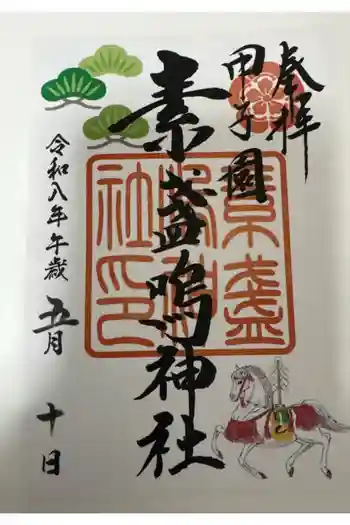 奉拝
甲子園
素盞嗚神社
素盞
嗚神
社印
令和八年午歳
五月
十日